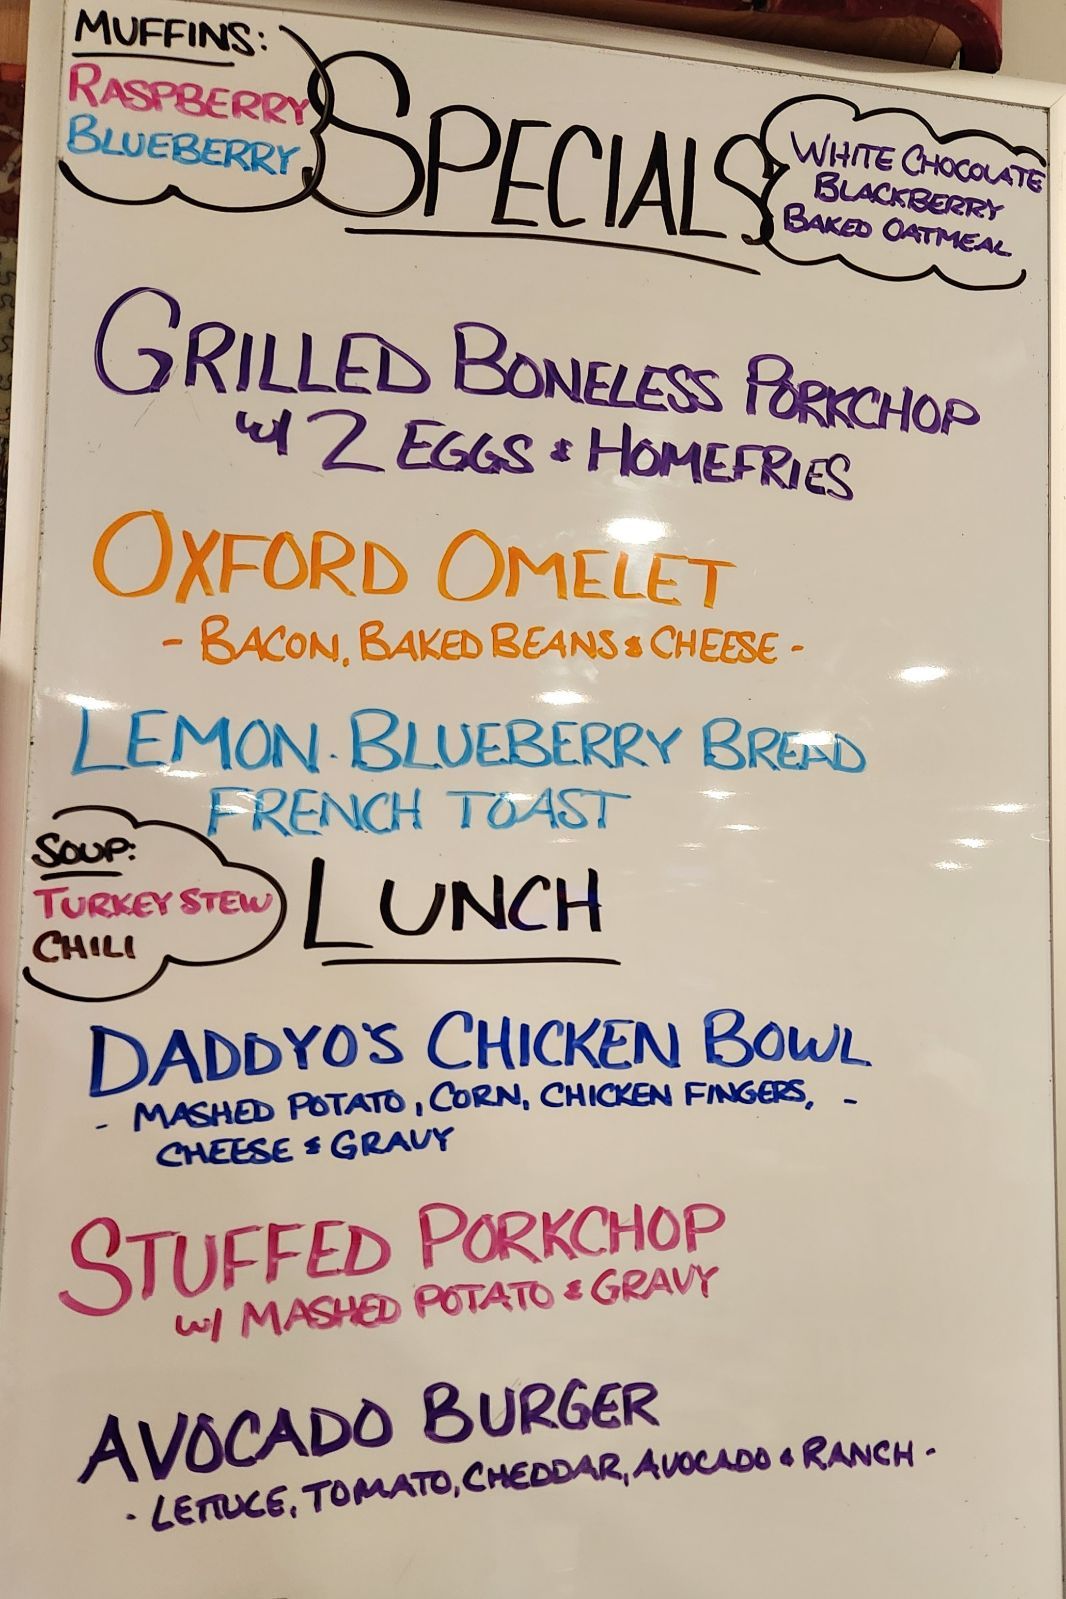 MUFFINS:
RASPBERRY
BLUEBERRY
SPECIALS
WHITE CHOCOLATE
BLACKBERRY
BAKED OATMEAL
GRILLED BONELESS PORKCHOP
w/ 2 EGGS & HOMEFRIES
OXFORD OMELET
- BACON, BAKED BEANS & CHEESE -
LEMON-BLUEBERRY BREAD
FRENCH TOAST
SOUP:
TURKEY STEW
CHILI
LUNCH
DADDYO'S CHICKEN BOWL
- MASHED POTATO, CORN, CHICKEN FINGERS, -
CHEESE & GRAVY
STUFFED PORKCHOP
w/ MASHED POTATO & GRAVY
AVOCADO BURGER
- LETTUCE, TOMATO, CHEDDAR, AVOCADO & RANCH -